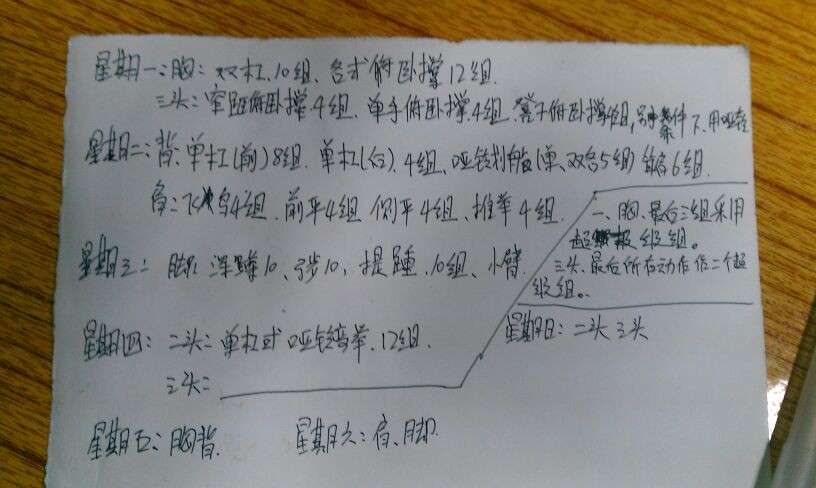 星期一:胸:双杠、10组、各式俯卧撑12组.
三头:窄距俯卧撑4组.单手俯卧撑.4组.凳子俯卧撑 组,条件下.用哑铃
星期二:背:单杠(前)8组.单杠(后).4组、哑铃划船(单、双各5组)耸肩6组.
肩:飞鸟4组.前平4组 侧平4组、推举4组.
一、胸、最后三组采用
超级组。
三头、最后所有动作作二个超
级组。
星期三: 脚:深蹲10、弓步10、提踵.10组、小臂.
星期四: 二头:单杠或哑铃弯举.12组.
三头:
星期日:二头 三头
星期五:胸背. 星期六:肩、脚.